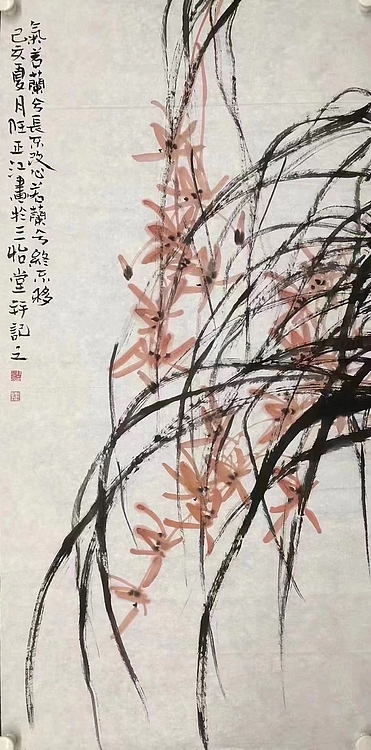 氣若蘭兮長不改心若蘭兮終不移
己亥夏月亚江畫於三怡堂并記之